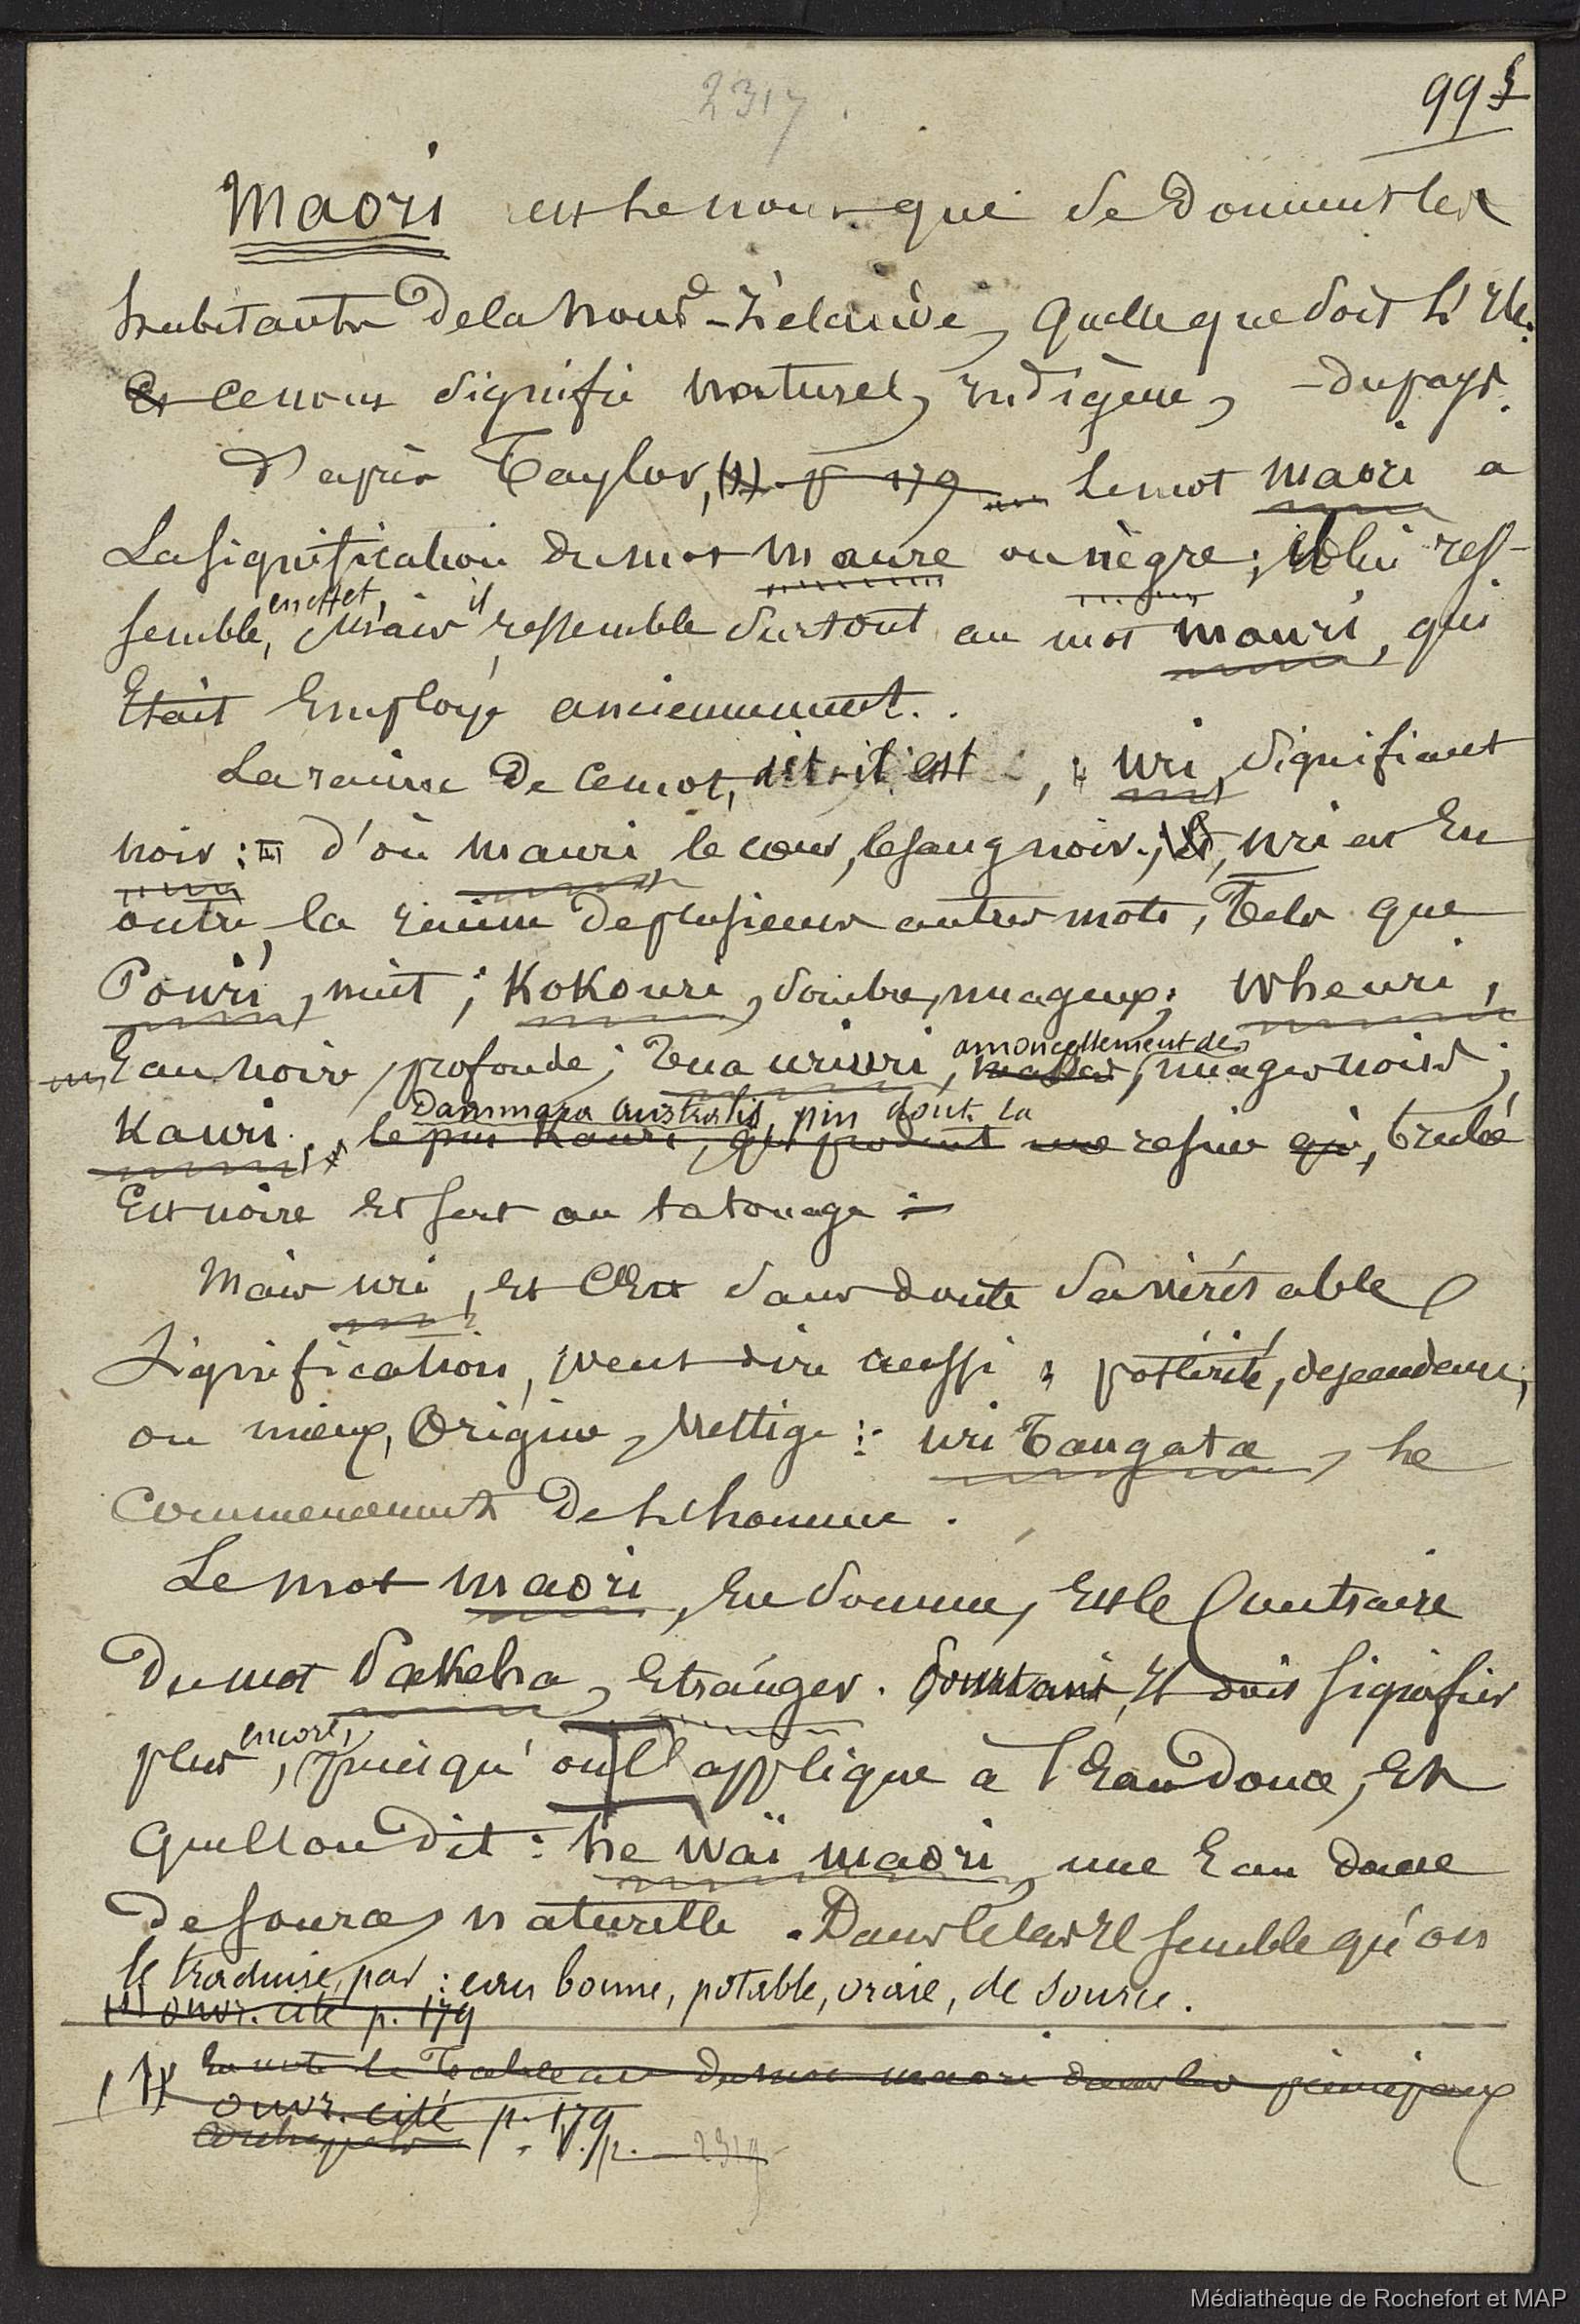 2317.
993
Maori est le nom que se donnent les
habitants de la Nouv.-Zélande, quelle que soit l'Ile.
Et ce nom signifie naturel, indigène, du pays.
D'après Taylor, (1) p 179 le mot maori a
la signification du mot maure ou nègre; il lui res-
semble, en effet, mais il ressemble surtout au mot mauri, qui
était employé anciennement.
La racine de ce mot, dit-il est, " uri, signifiant
noir: " d'où mauri le cœur, le sang noir.; Et, uri est en
outre, la racine de plusieurs autres mots, tels que
Pouri, nuit; Kokouri, sombre, nuageux; Wheuri,
Eau noire, profonde; Tua uriuri, masses, amoncellement de nuages noirs;
Kauri, le pin Kauri, qui produit une Dammara australis, pin dont la resine qui, brulée
Est noire et sert au tatouage.
Mais uri, et c'est sans doute sa véritable
signification, veut dire aussi " postérité, descendance,
ou mieux, Origine, Vestige: uri Tangata, le
commencement de l'homme.
Le mot maori, en somme, est le contraire
du mot Pakeha, Etranger. Pourtant, il doit signifier
plus encore, puisqu'on l'applique à l'Eau douce, et
que l'on dit: he waï maori, une Eau douce
de source, naturelle. Dans le cas il semble qu'on
le traduise, par: eau bonne, potable, vraie, de source.
(1) ouvr. cité p. 179
(1) En note le Tableau du mot maori dans les principaux
ouvr. cité p. 179.
archipels p. 2319
Médiathèque de Rochefort et MAP